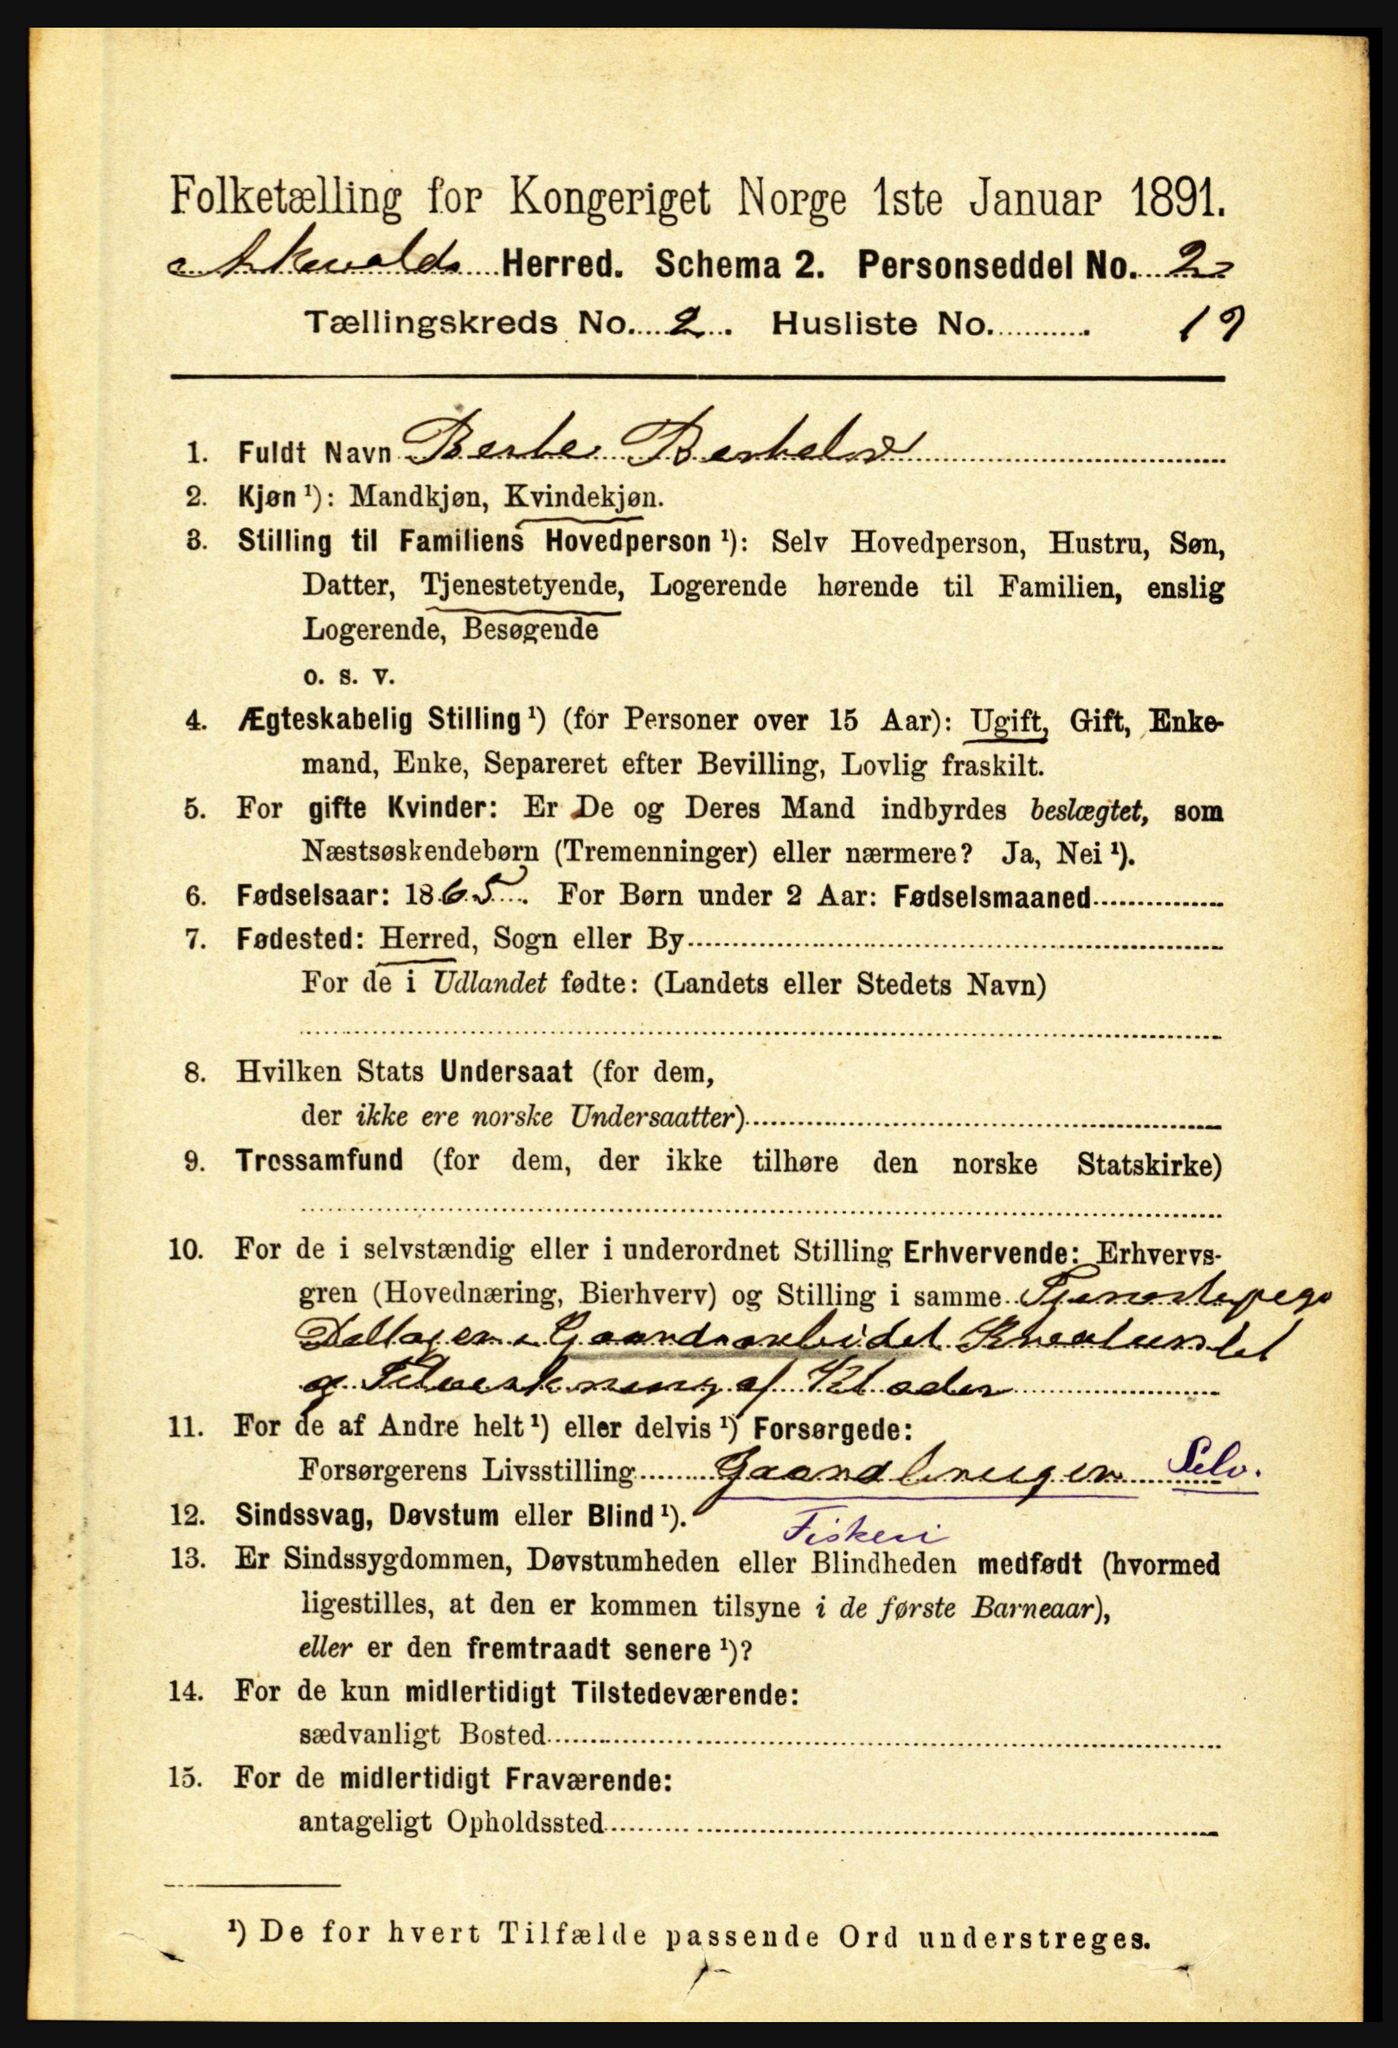 Folketælling for Kongeriget Norge 1ste Januar 1891.
Askvolds Herred. Schema 2. Personseddel No. 2
Tællingskreds No. 2. Husliste No. 19
1. Fuldt Navn Berte Bertelsd
2. Kjøn ¹): Mandkjøn, Kvindekjøn.
3. Stilling til Familiens Hovedperson ¹): Selv Hovedperson, Hustru, Søn,
Datter, Tjenestetyende, Logerende hørende til Familien, enslig
Logerende, Besøgende
o. s. v.
4. Ægteskabelig Stilling ¹) (for Personer over 15 Aar): Ugift, Gift, Enke-
mand, Enke, Separeret efter Bevilling, Lovlig fraskilt.
5. For gifte Kvinder: Er De og Deres Mand indbyrdes beslægtet, som
Næstsøskendebørn (Tremenninger) eller nærmere? Ja, Nei ¹).
6. Fødselsaar: 1865. For Børn under 2 Aar: Fødselsmaaned
7. Fødested: Herred, Sogn eller By
For de i Udlandet fødte: (Landets eller Stedets Navn)
8. Hvilken Stats Undersaat (for dem,
der ikke ere norske Undersaatter)
9. Trossamfund (for dem, der ikke tilhøre den norske Statskirke)
10. For de i selvstændig eller i underordnet Stilling Erhvervende: Erhvervs-
gren (Hovednæring, Bierhverv) og Stilling i samme Tjenestepige
Deltager i Gaardsarbeidet Kreaturstel
og Tilvirkning af Klæder
11. For de af Andre helt ¹) eller delvis ¹) Forsørgede:
Forsørgerens Livsstilling Gaardbruger Selv.
12. Sindssvag, Døvstum eller Blind ¹). Fiskeri
13. Er Sindssygdommen, Døvstumheden eller Blindheden medfødt (hvormed
ligestilles, at den er kommen tilsyne i de første Barneaar),
eller er den fremtraadt senere ¹)?
14. For de kun midlertidigt Tilstedeværende:
sædvanligt Bosted
15. For de midlertidigt Fraværende:
antageligt Opholdssted
¹) De for hvert Tilfælde passende Ord understreges.